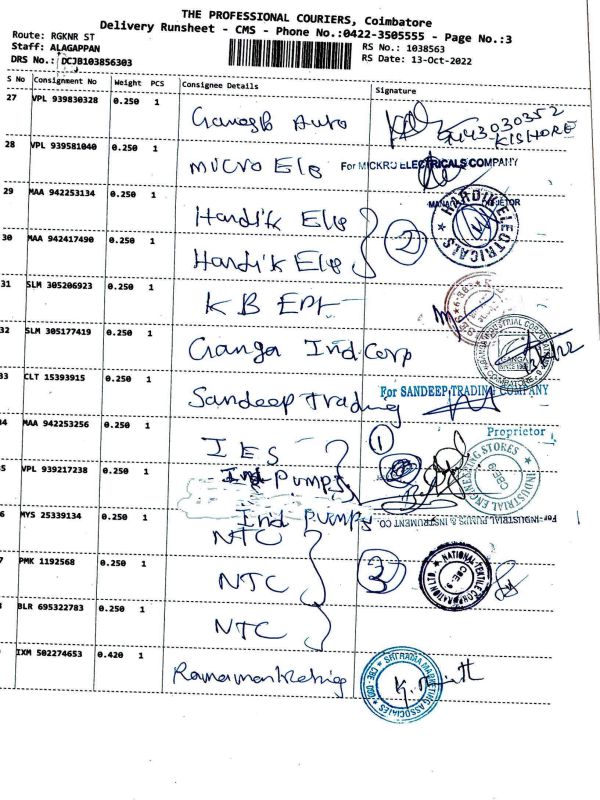 THE PROFESSIONAL COURIERS, Coimbatore
Delivery Runsheet - CMS - Phone No.:0422-3505555 - Page No.:3
Route: RGKNR ST
Staff: ALAGAPPAN
RS No.: 1038563
DRS No.: DCJB103856303
RS Date: 13-Oct-2022
S No Consignment No Weight PCS Consignee Details Signature
27 VPL 939830328 0.250 1 Auto
KISHORE
28 VPL 939581040 0.250 1 Micro Ele
For MICKRO ELECTRICALS COMPANY
29 MAA 942253134 0.250 1 Hardik Ele
HARDIK ELECTRICALS
2
30 MAA 942417490 0.250 1 Hardik Ele
31 SLM 305206923 0.250 1 K B
32 SLM 305177419 0.250 1 Ganga Ind Corp
33 CLT 15393915 0.250 1 Sandeep Trading
For SANDEEP TRADING COMPANY
Proprietor
34 MAA 942253256 0.250 1 IES
1
INDUSTRIAL ENGINEERING STORES
CBE-9
35 VPL 939217238 0.250 1 Ind Pumps
Ind Pumps
For INDUSTRIAL PUMPS & INSTRUMENT CO.
36 MYS 25339134 0.250 1 NTC
37 PMK 1192568 0.250 1 NTC
3
NATIONAL TEXTILE CORPORATION LTD.
CBE 9
38 BLR 695322783 0.250 1 NTC
39 IXM 502274653 0.420 1
MARKETING ASSOCIATES